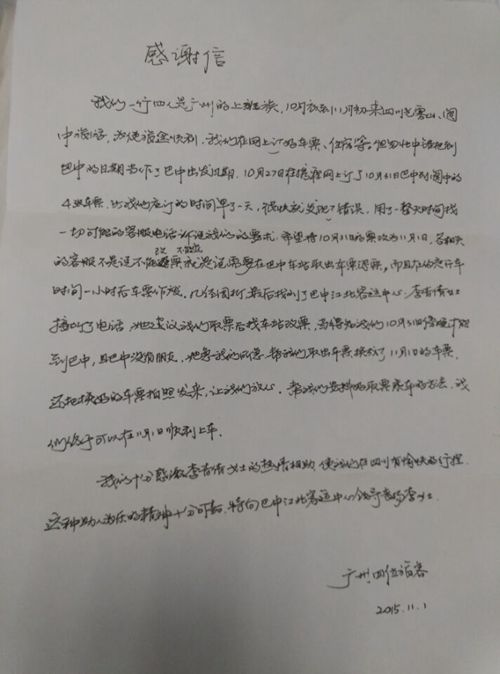 感谢信
我们一行四人是广州的上班族，10月底到11月初来四川光雾山、阆
中旅游，为使旅途快利，我们在网上订的车票、住宿等。但匆忙中错把到
巴中的日期当作了巴中出发日期，10月27日在携程网上订了10月31日巴中到阆中的
4张车票，比我们应订的时间早了一天，很快就发现了错误，用了一整天时间找
一切可能的客服电话诉说我们的要求，希望将10月31日的票改为11月1日，各相关
的客服不是说不能改票就是说需要在巴中车站取出车票退票，而且在发行车
时间一小时后车票作废。几经周折最后找到了巴中江北客运中心，李青倩女士
接听了电话，她建议我们取票后找车站改票，当得知我们10月31日傍晚才能
到巴中，且巴中没有朋友，她帮我们取出车票换成了11月1日的车票，
还把换好的车票拍照发来，让我们放心，帮我们安排好取票乘车的方法，我
们终于可以在11月1日顺利上车。
我们十分感激李青倩女士的热情相助，使我们在四川有愉快的行程，
这种助人为乐的精神十分可嘉，特向巴中江北客运中心领导表扬李女士
广州四位旅客
2015.11.1